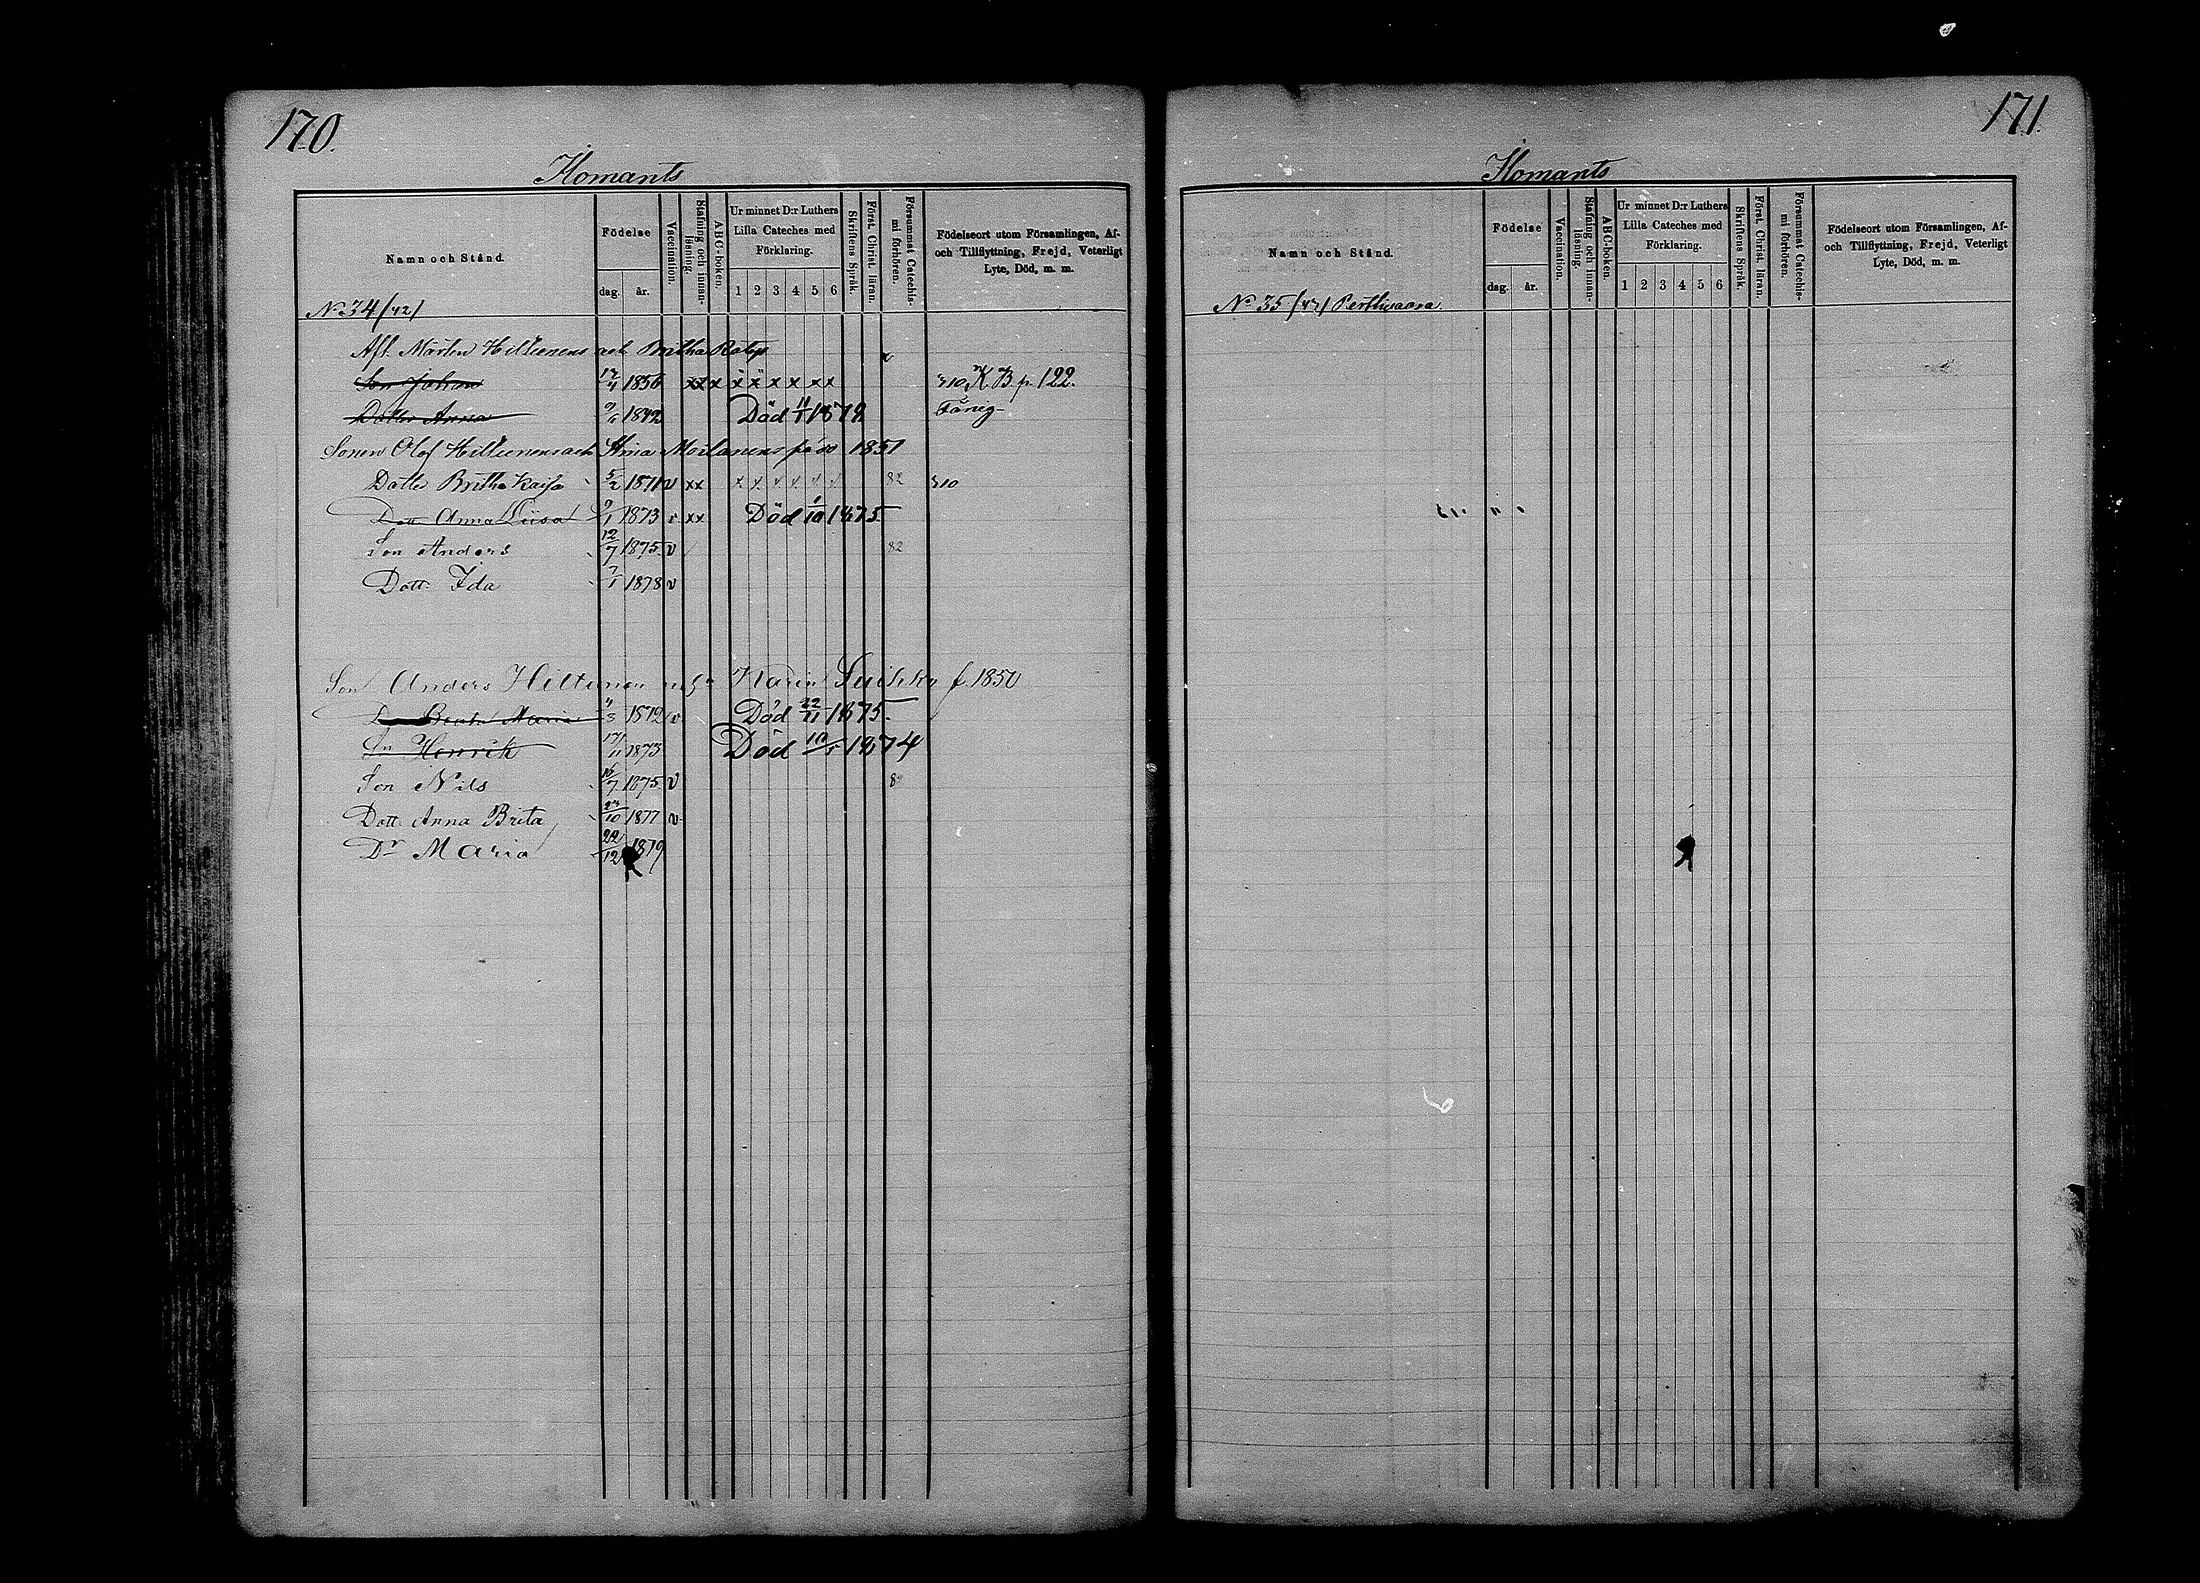 170.
Ilomants
Namn och Stånd.
Födelse
dag. år.
Vaccination.
Stafning och innan-läsning.
ABC-boken.
Ur minnet D:r Luthers
Lilla Cateches med
Förklaring.
1 2 3 4 5 6
Skriftens Språk.
Först. Christ. läran.
Försummat Catechis-mi förhören.
Födelseort utom Församlingen, Af-
och Tillflyttning, Frejd, Veterligt
Lyte, Död, m. m.
No 34 /42/
Afl. Mårten Hiltunens och Britha Rotys
Son Johan 12/4 1856 xx x x x x x x x 310, K B p. 122.
Dotter Anna 9/6 1842 Död 11/1 1878
Sonen Olof Hiltunens och Stina Moilanens 1851
Dotter Britha Kaisa 5/2 1871 v xx x x x x x x 82 310
Dott Anna Liisa 9/1 1873 v xx Död 1/10 1875
Son Anders 12/7 1875 v 82
Dott. Ida 7/1 1878 v
Son Anders Hiltunen Karin f. 1850
Maria 1872 v Död 22/11 1875.
Sn Henrik 17/11 1873 Död 1874
Son Nils 16/7 1875 v
Dott. Anna Brita 10 1877 v
Dr Maria 22/12 1879
171.
Ilomants
Namn och Stånd.
Födelse
dag. år.
Vaccination.
Stafning och innan-läsning.
ABC-boken.
Ur minnet D:r Luthers
Lilla Cateches med
Förklaring.
1 2 3 4 5 6
Skriftens Språk.
Först. Christ. läran.
Försummat Catechis-mi förhören.
Födelseort utom Församlingen, Af-
och Tillflyttning, Frejd, Veterligt
Lyte, Död, m. m.
No 35 /47/ Perttivaara.